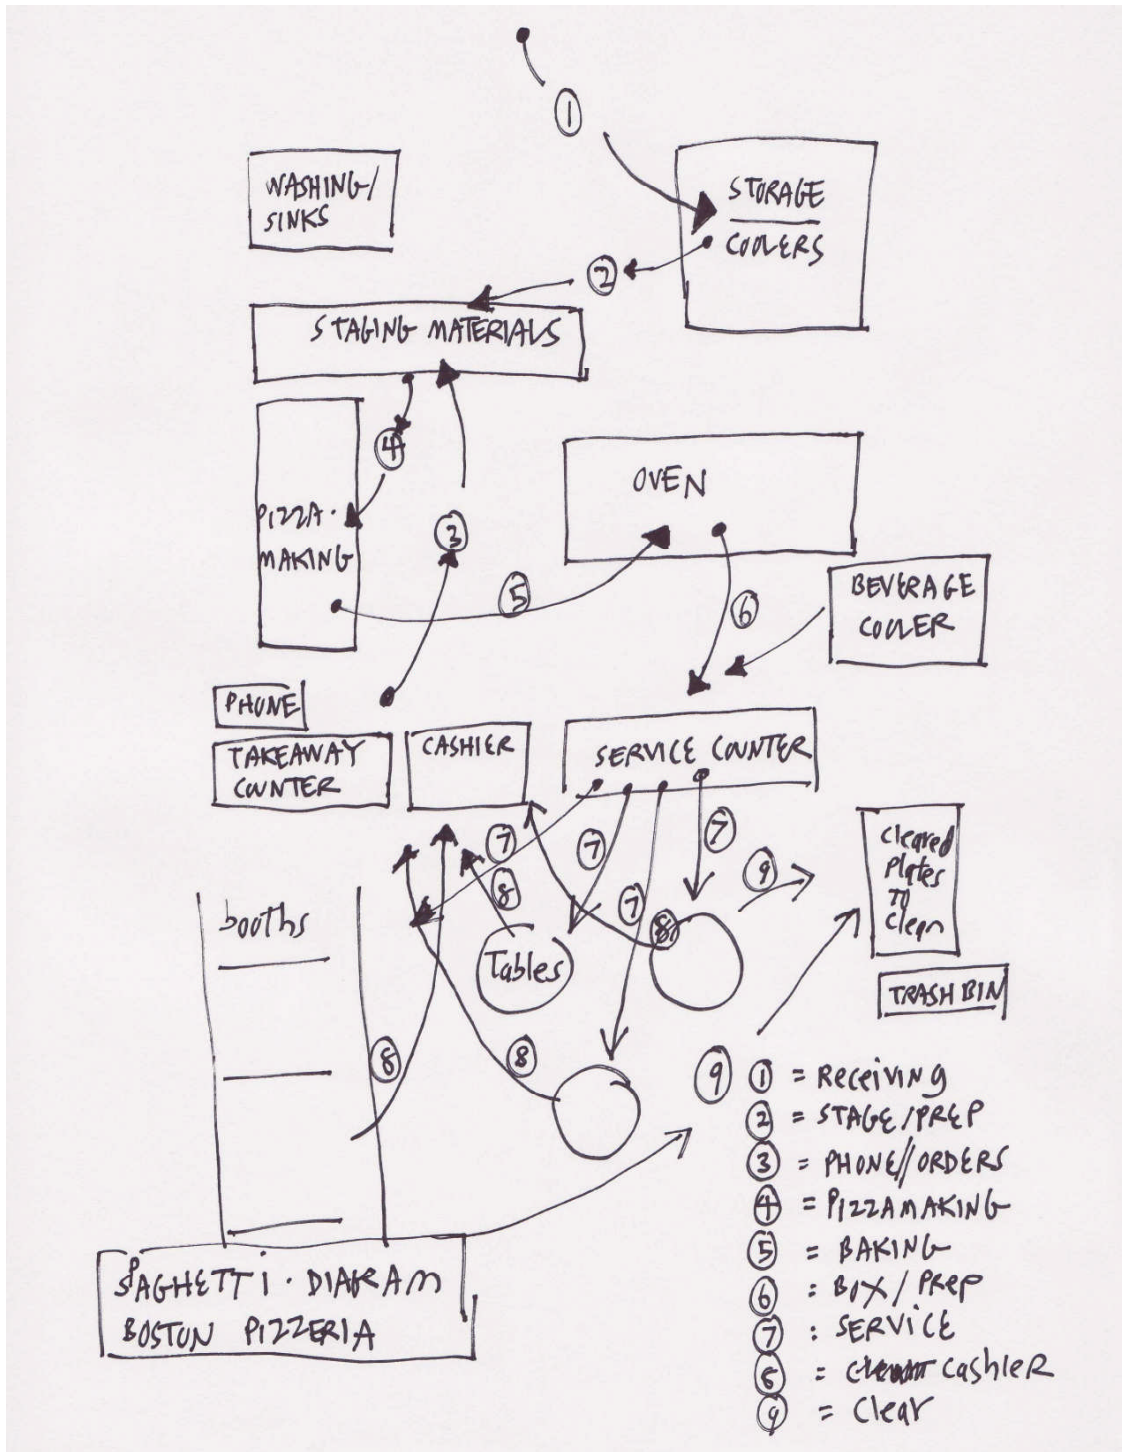 ①
WASHING/
SINKS
STORAGE
COOLERS
②
STAGING MATERIALS
④
③
PIZZA-
MAKING
OVEN
⑤
⑥
BEVERAGE
COOLER
PHONE
TAKEAWAY
COUNTER
CASHIER
SERVICE COUNTER
⑦
⑦
⑦
⑦
⑧
⑧
⑨
Cleared
Plates
TO
Clean
booths
Tables
TRASH BIN
⑧
⑧
⑨
① = Receiving
② = STAGE/PREP
③ = PHONE//ORDERS
④ = PIZZAMAKING
⑤ = BAKING
⑥ : BOX/PREP
⑦ : SERVICE
⑧ = cashier
⑨ = Clear
SPAGHETTI · DIAGRAM
BOSTON PIZZERIA